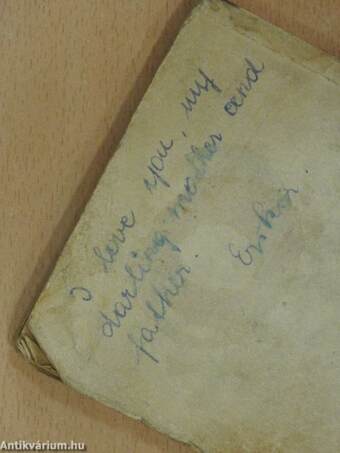 I love you, my
darling mother and
father.
Erika.
Antikvárium.hu